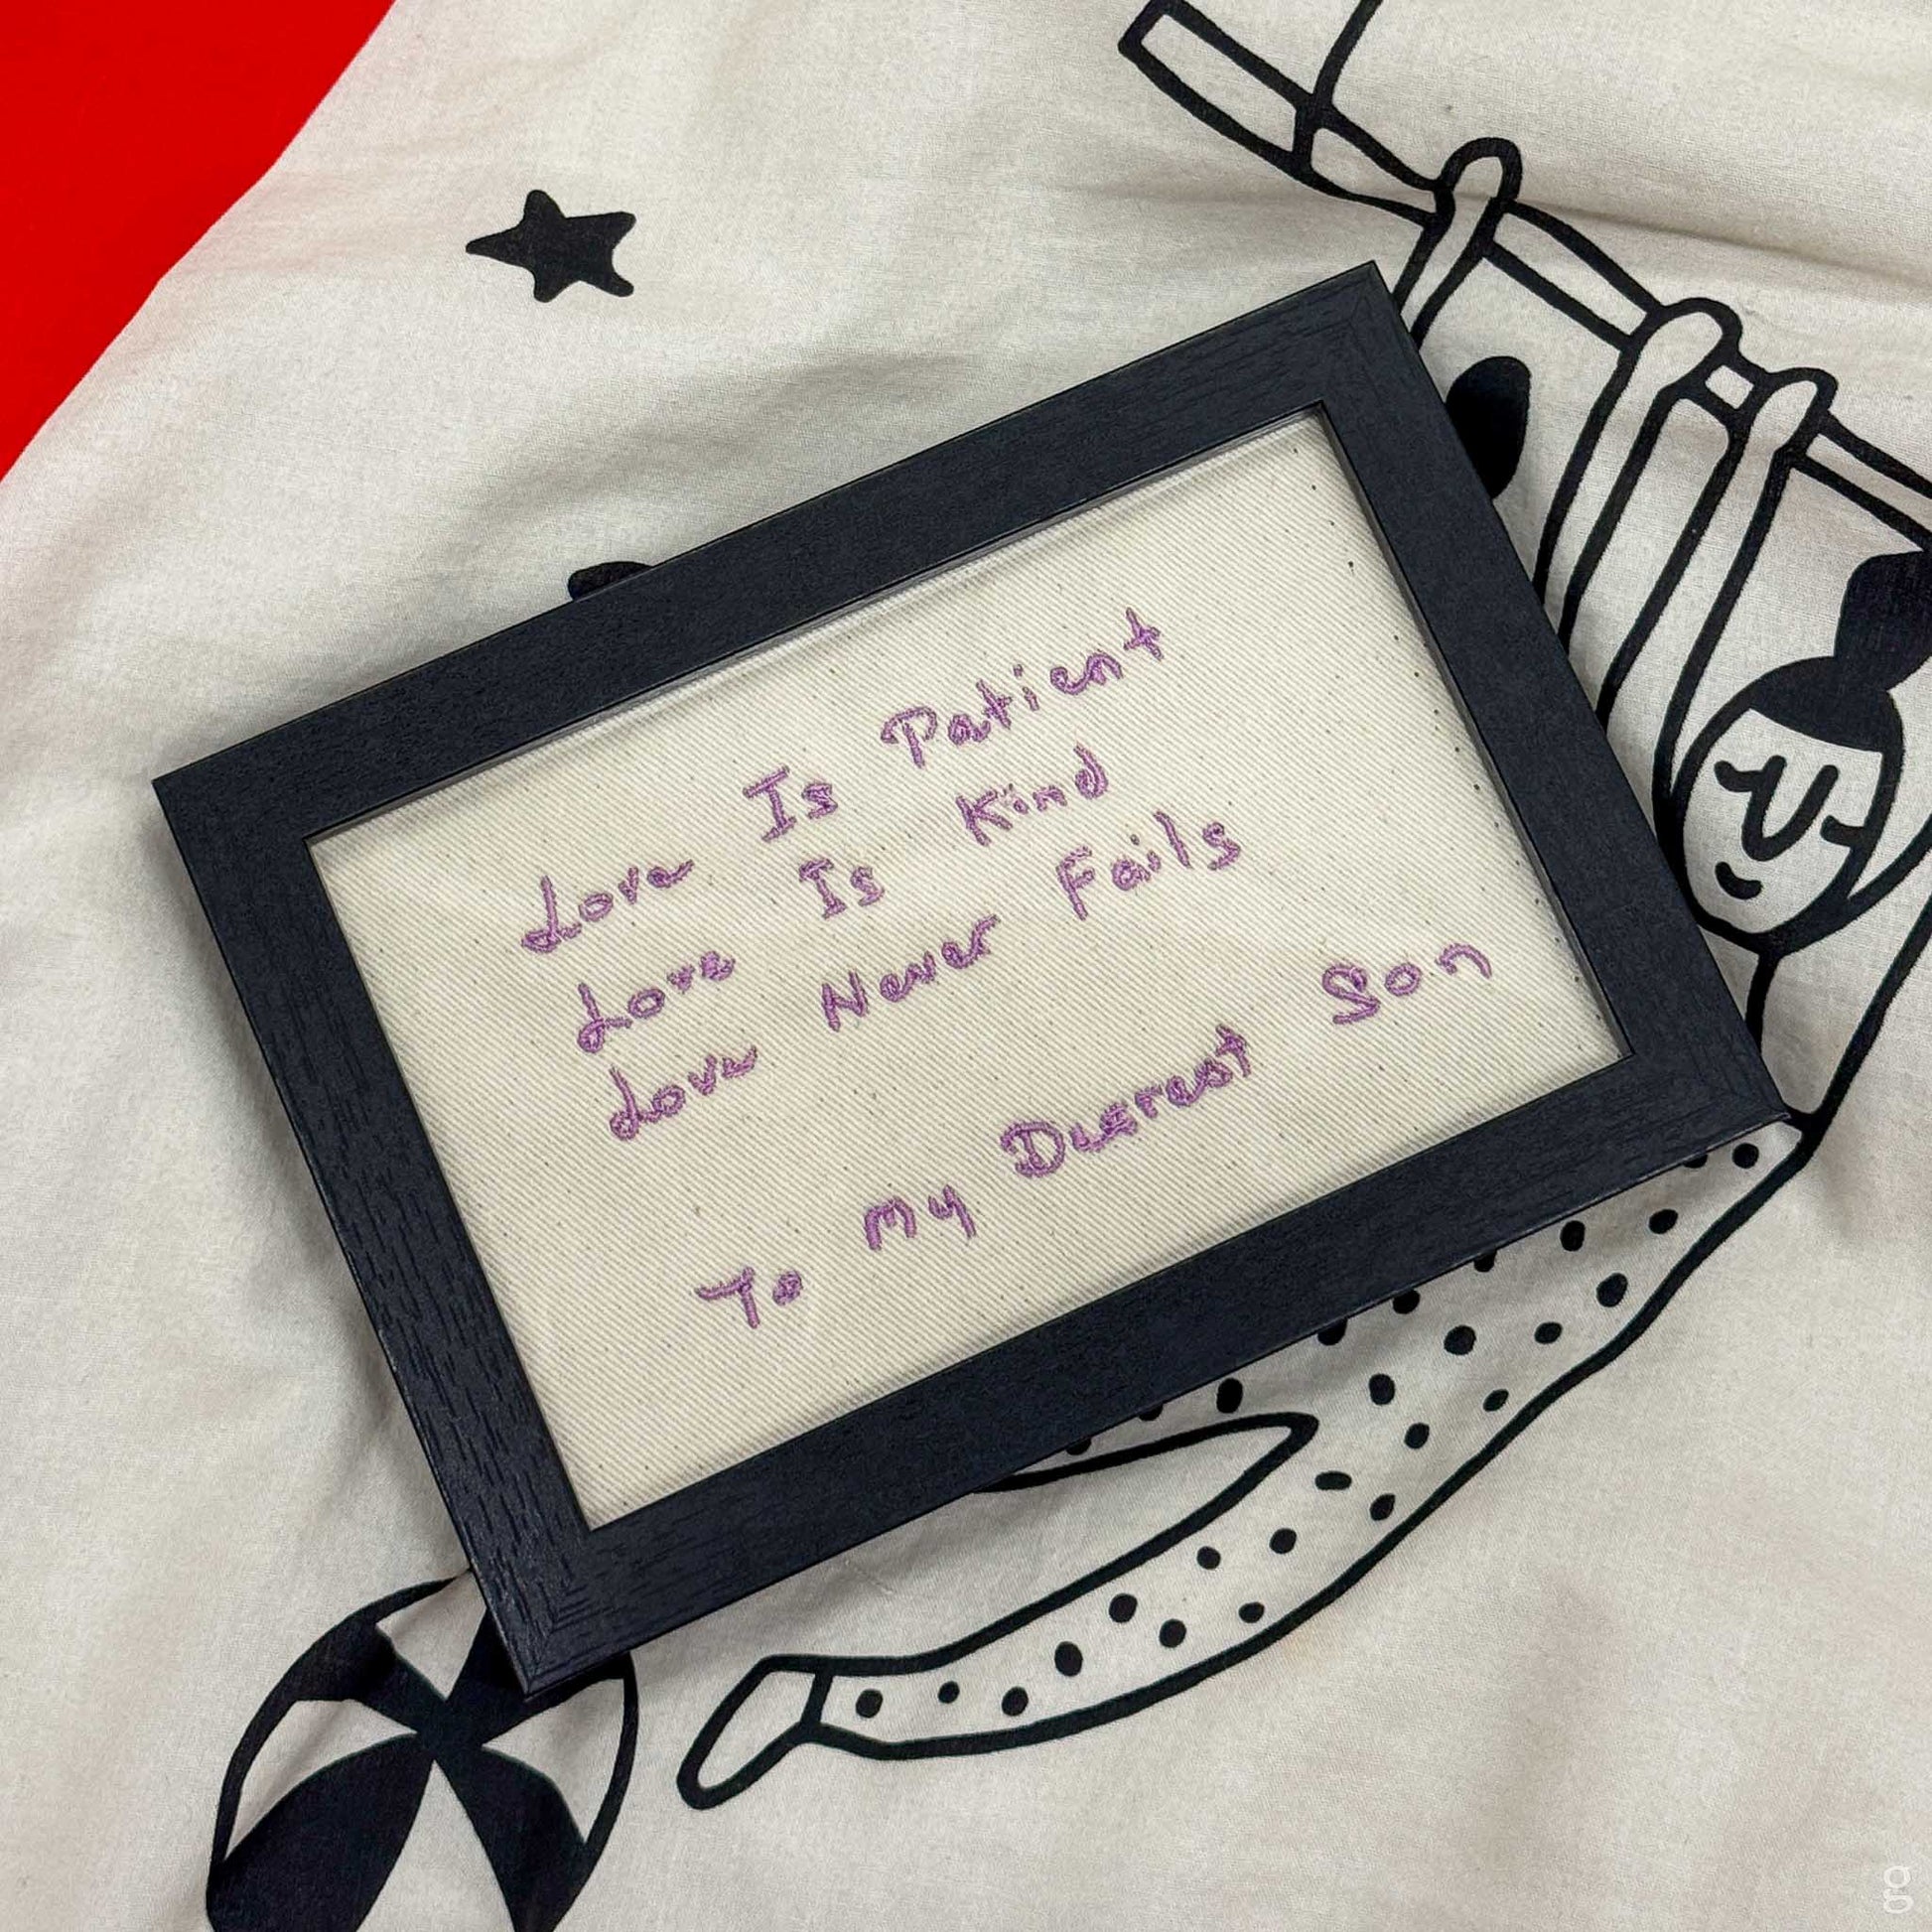 Love Is Patient
Love Is Kind
Love Never Fails
To My Dearest Son
g